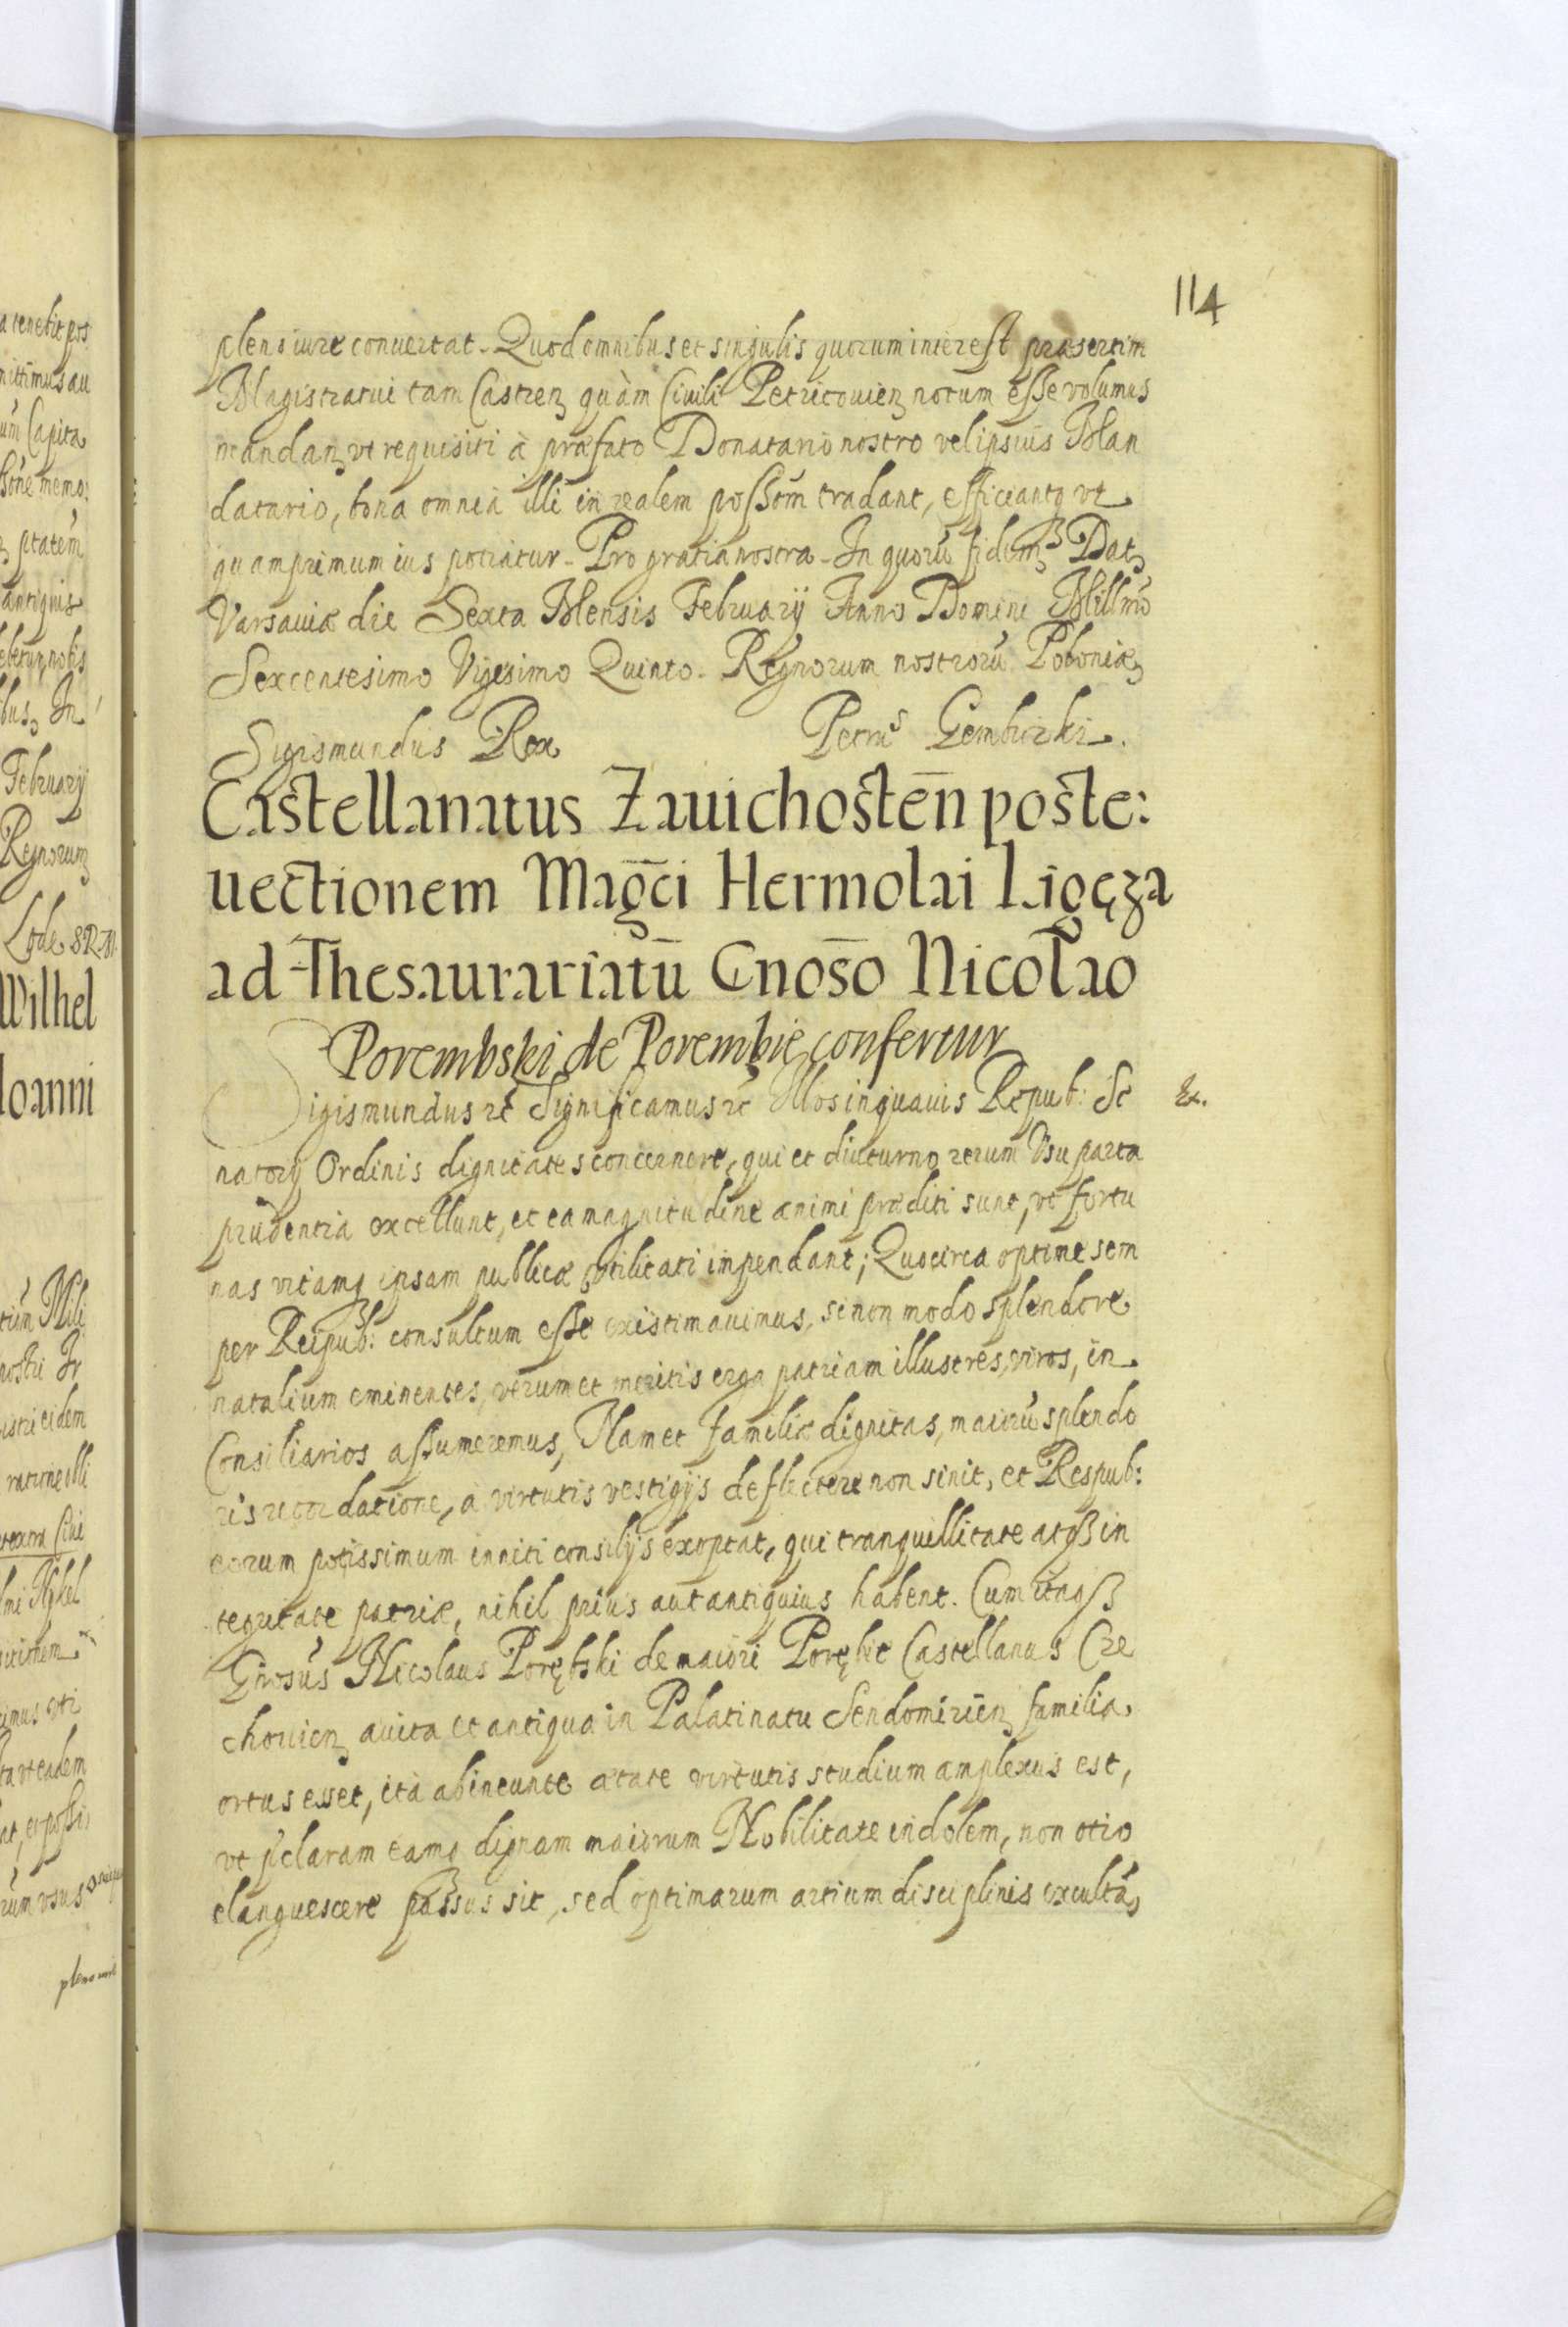 114
pleno iure conuertat. Quod omnibus et singulis quorum interest præsertim
Magistratui tam Castren quàm Ciuili Petricouien notum esse volumus
mandan vt requisiti à præfato Donatario nostro vel ipsius Man
datario, bona omnia illi in realem possom tradant, efficiantq vt
quamprimum ius potiatur. Pro gratia nostra. In quorū fidem Dat
Varsauiæ die Sexta Mensis February Anno Domini Millmo
Sexcentesimo Vigesimo Quinto. Regnorum nostrorū Poloniæ
Sigismundus Rex Petrus Gembicki.
Castellanatus Zauichostēn post e:
uectionem Magci Hermolai Ligęza
ad Thesaurariatū Gnoso Nicolao
Porembski de Porembie confertur
Sigismundus etc Significamus etc Illos in quauis Repub: Se
natorij Ordinis dignitates concernere, qui et diuturno rerum Vsu parta
prudentia excellunt, et ea magnitudine animi præditi sunt, vt fortu
nas vitamq ipsam publicæ vtilitati impendant; Quocirca optime sem
per Reipub: consultum esse existimauimus, si non modo splendore
natalium eminentes, verum et meritis erga patriam illustres viros, in
Consiliarios assumeremus, Nam et familiæ dignitas, maiorū splendo
ris recordatione, à virtutis vestigijs deflectere non sinit, et Respub:
eorum potissimum inniti consilijs exoptat, qui tranquillitate atq in
tegritate patriæ, nihil prius aut antiquius habent. Cum itaq
Gnosus Nicolaus Porębski de maiori Porębie Castellanus Cze
chouien auita et antiqua in Palatinatu Sendomirien familia
ortus esset, ita ab ineunte ætate virtutis studium amplexus est,
vt pclaram eamq dignam maiorum Nobilitate indolem, non otio
elanguescere passus sit, sed optimarum artium disciplinis excultā
Ex.